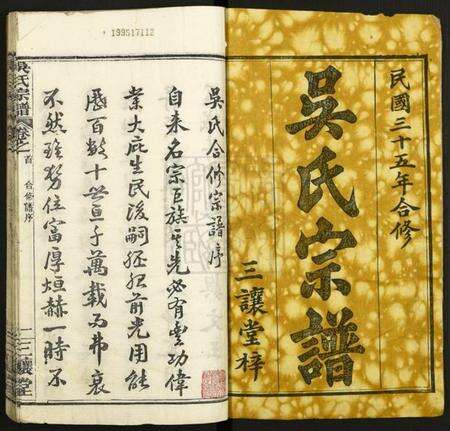 民國三十五年合修
吳氏宗譜
三讓堂梓
199517112
吳氏合修宗譜序
自来名宗巨族其先必有豐功偉
業大庇生民後嗣經担前光用能
歷百数十世亘千萬載而弗衰
不然雖势位富厚烜赫一時不
吳氏宗譜
卷之首
合修譜序
一
三讓堂